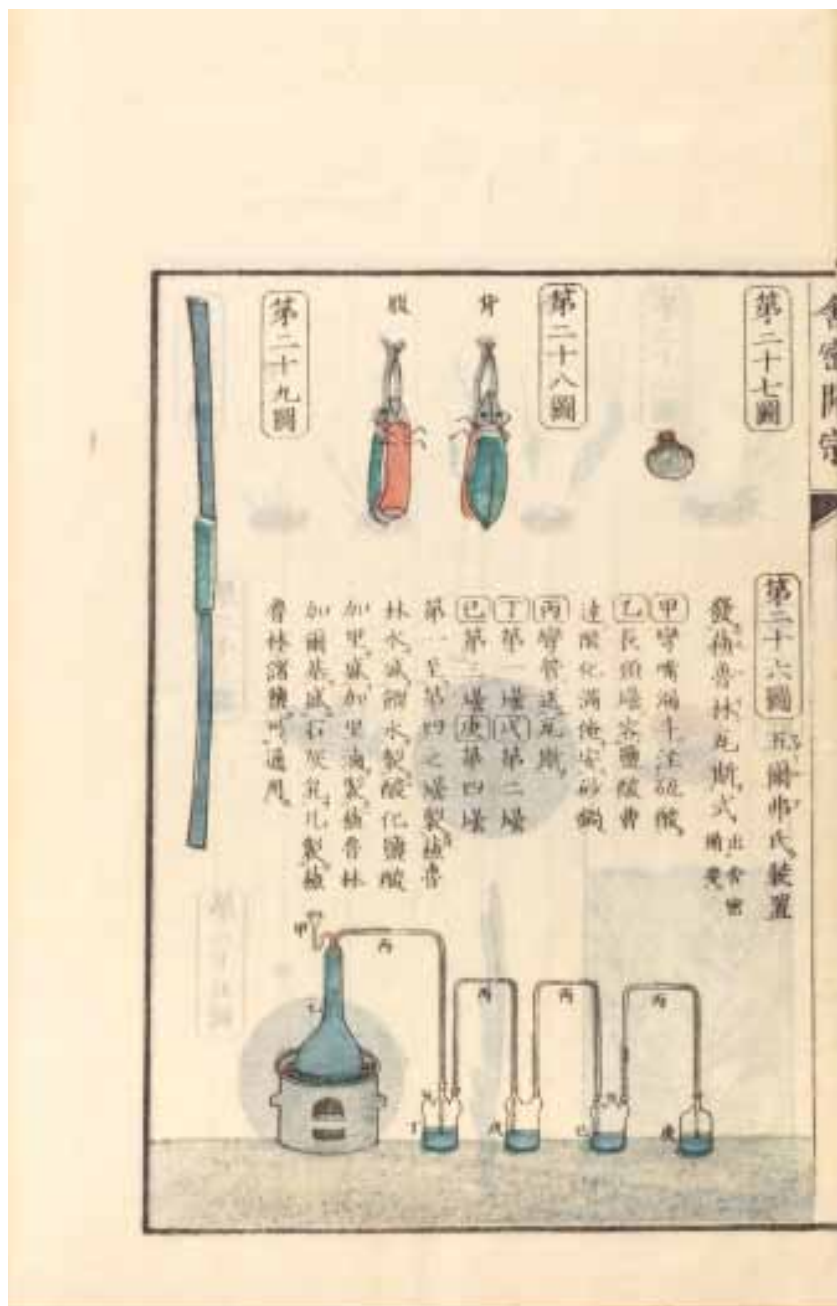 舍密開宗
第二十七圖
第二十八圖
背
腹
第二十九圖
第二十六圖 五爾弗氏裝置
發格魯林瓦斯式 出舍密
備要
甲 彎嘴漏斗注硫酸
乙 長頸壜容鹽酸曹
達酸化滿俺安砂鍋
丙 彎管送瓦斯
丁 第一壜 戊 第二壜
己 第三壜 庚 第四壜
第一至第四之壜製格魯
林水盛餾水製酸化鹽酸
加里盛加里滷製格魯林
加爾基盛石灰乳凡製格
魯林諸鹽可通用
甲
乙
丙
丙
丙
丙
丁
戊
己
庚